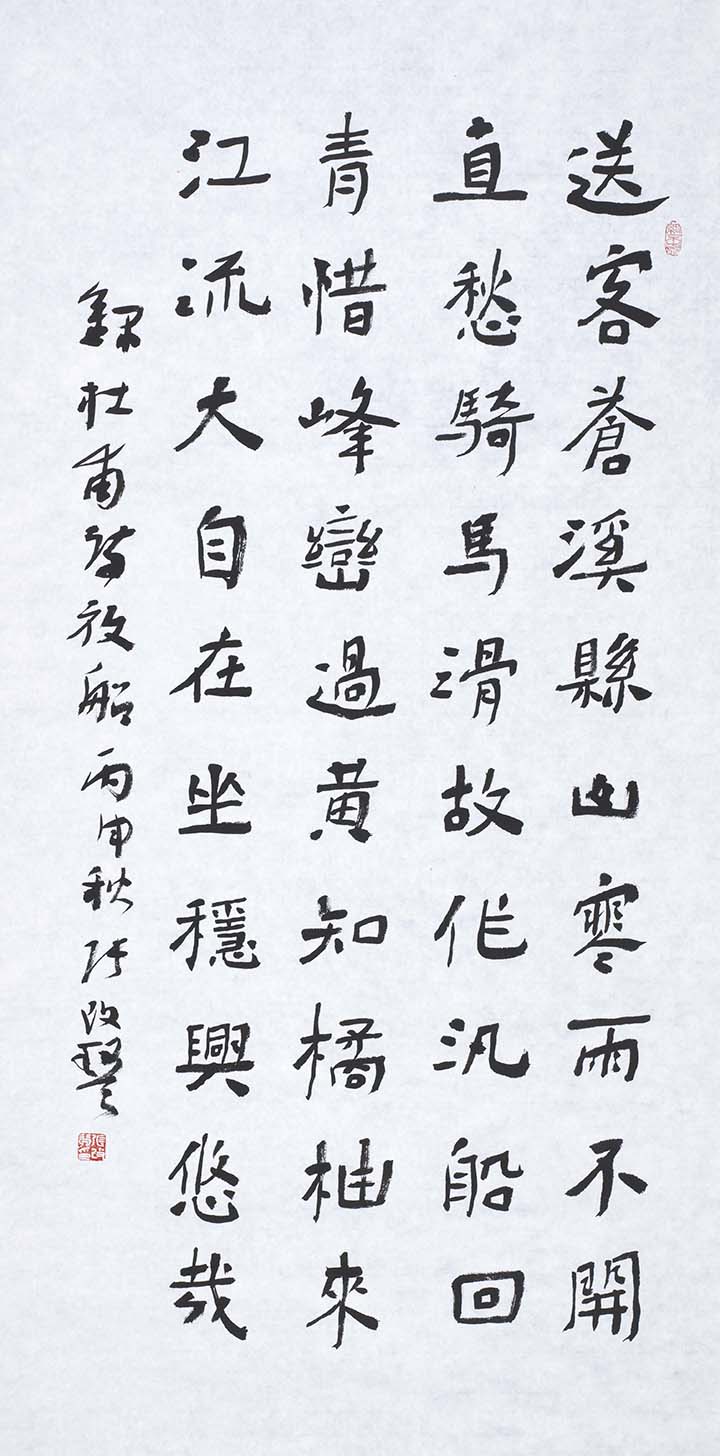 送客蒼溪縣山寒雨不開
直愁騎馬滑故作汎船回
青惜峰巒過黃知橘柚來
江流大自在坐穩興悠哉
錄杜甫詩放船丙申秋張改琴